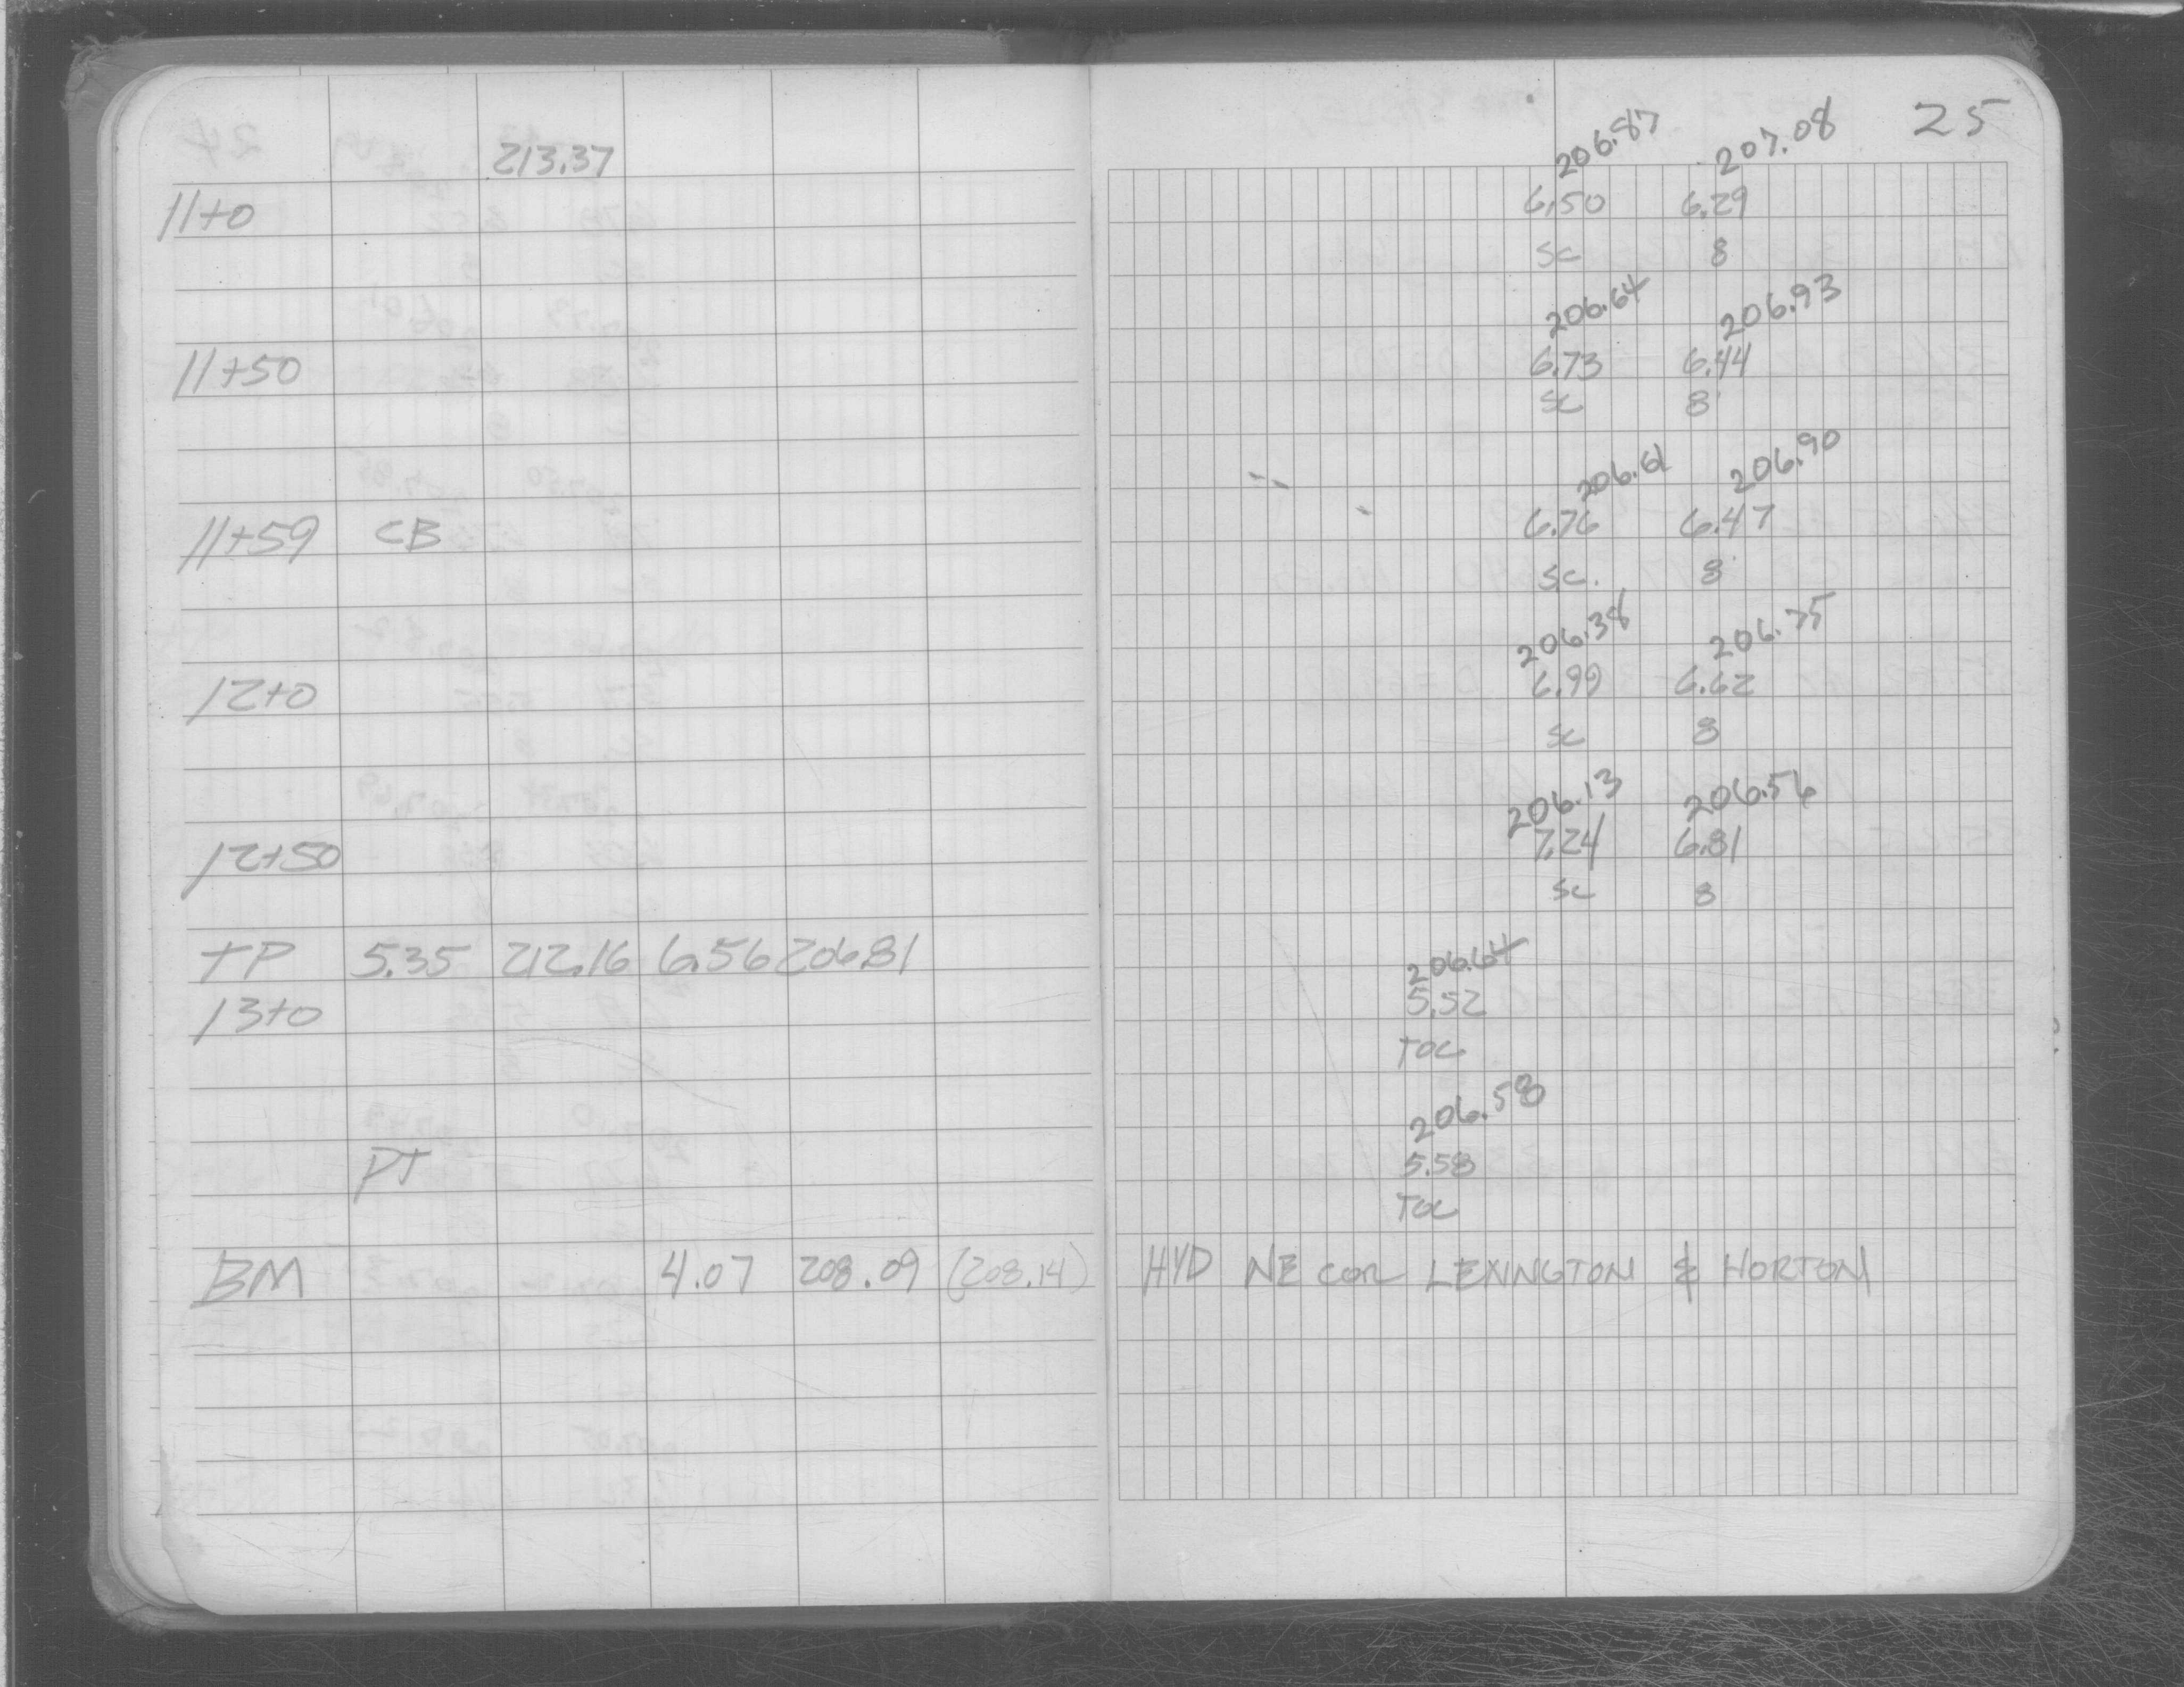 25
213.37 206.87 207.08
11+0 6.50 6.29
SC 8
206.64 206.93
11+50 6.73 6.44
SC 8
206.61 206.90
11+59 CB 6.76 6.47
SC. 8
206.38 206.75
12+0 6.99 6.62
SC 8
206.13 206.56
12+50 7.24 6.81
SC 8
TP 5.35 212.16 6.56 206.81 206.64
13+0 5.52
TOC
206.58
PT 5.58
TOC
BM 4.07 208.09 (208.14) HYD NE COR LEXINGTON & HORTON